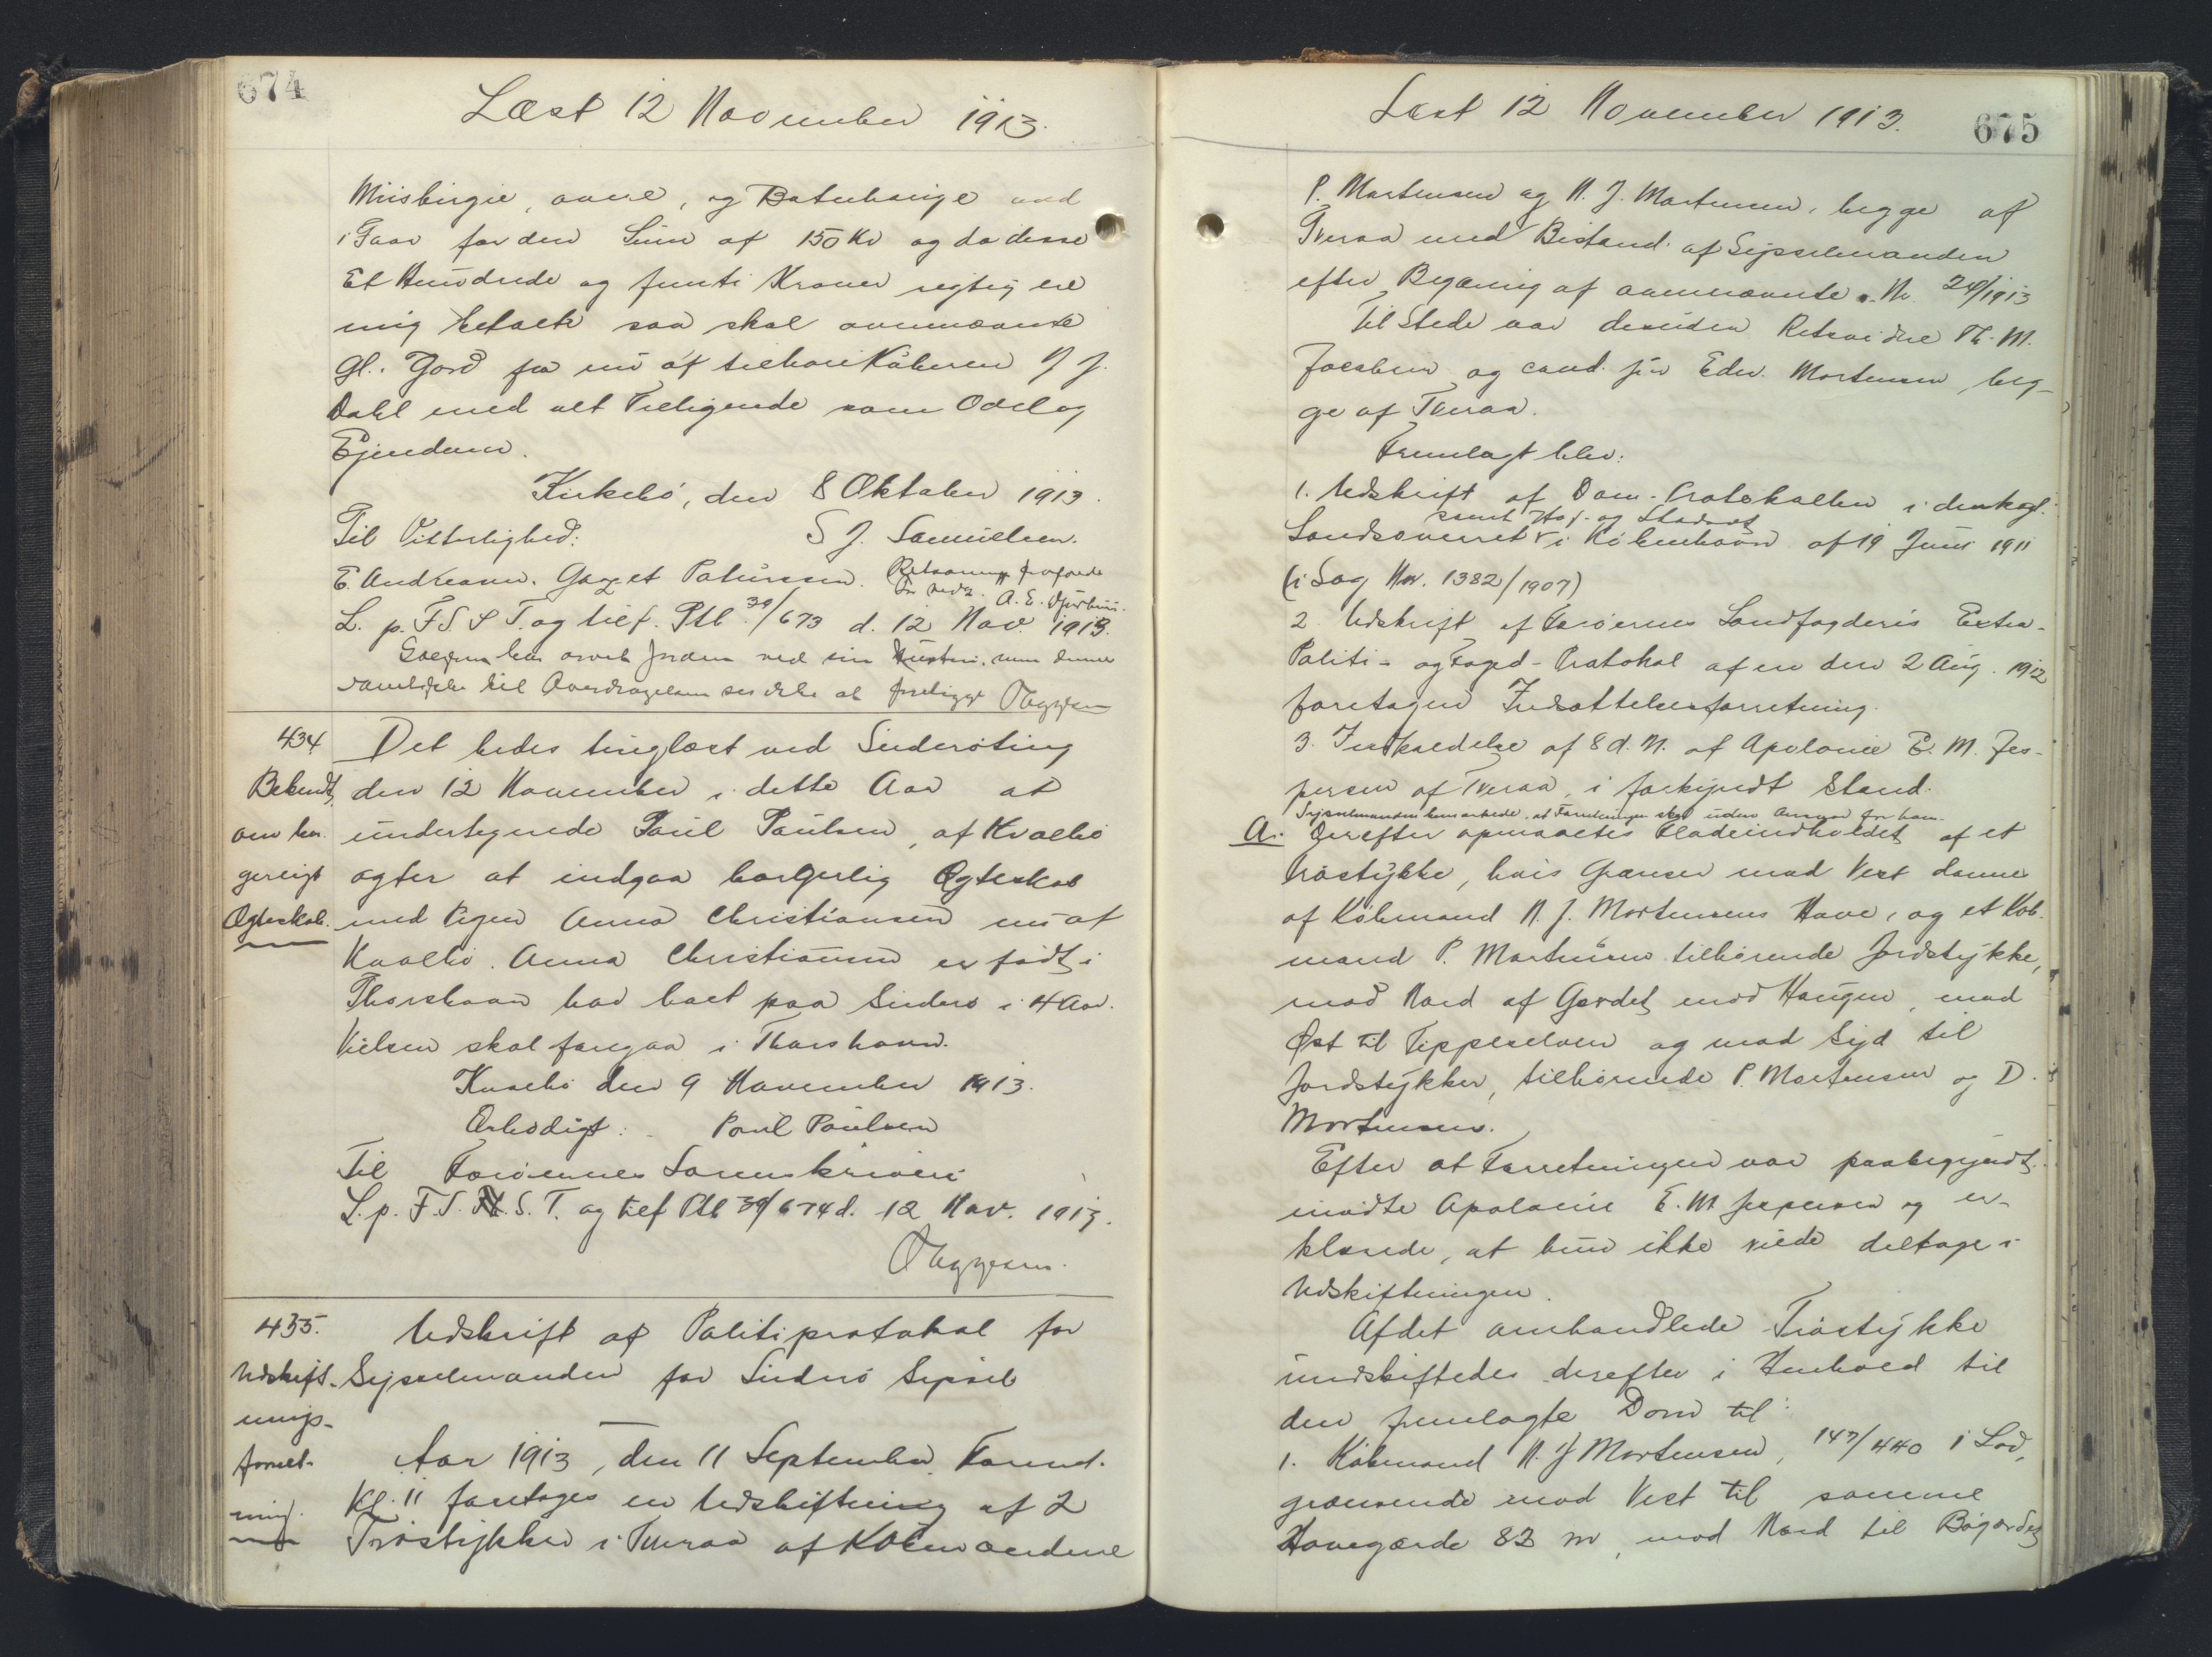 674
Læst 12 November 1913.
Miisbirgie, ovne, og Batuhavige ved
i Faar for den Sum af 150 Kr og da disse
Et Hundrede og femti Kroner rigtig ere
mig betalt saa skal ovennævnte
Gl. Jord fra nu af tilhøre Køberen J J.
Dahl med alt Tilligende som Odel og
Ejendom.
Kirkebø, den 8 Oktober 1913.
Til Vitterlighed: S J. Samuelsen.
E. Andreasen. Gazet Patursson.
A. E. Djurhuus.
L. p. F. S. S T. og tilf. Ptb 39/673 d. 12 Nov. 1913.
Sælgeren har arvet Jorden ved sin Hustru, men dennes
samtykke til Overdragelsen ses ikke at foreligge
434
Bekendt,
om bor
gerligt
Ægteskab.
Det bedes tinglæst ved Suderøting
den 12 November i dette Aar at
undertegnede Poul Poulsen, af Kvalbø
agter at indgaa borgerlig Ægteskab
med Pigen Anna Christiansen nu af
Kvalbø. Anna Christiansen er født i
Thorshavn har boet paa Suderø i 4 Aar.
Vielsen skal foregaa i Thorshavn.
Kvalbø den 9 November 1913.
Ærbødigst: Poul Poulsen
Til Færøernes Sorenskriveri
L. p. F. S. S. T. og tilf Ptb 39/674 d. 12 Nov. 1913.
435.
Udskift-
nings-
forret-
ning.
Udskrift af Politiprotokol for
Sysselmanden for Suderø Syssel
Aar 1913, den 11 September Formd.
Kl. 11 foretoges en Udskiftning af 2
Trøstykker i Tveraa af Købmændene
Læst 12 November 1913.
675
P. Mortensen og N. J. Mortensen, begge af
Tveraa med Bistand af Sysselmanden
efter Begæring af ovennævnte. Nr. 24/1913
Til Stede var desuden Retsvidne Th. M.
Jacobsen og cand. jur Edw. Mortensen beg-
ge af Tveraa.
Fremlagt blev:
1. Udskrift af Dom-Protokollen i den kgl.
samt Hof- og Stadsret
Landsoverret i København af 19 Juni 1911
(i Sag Nr. 1382/1907)
2. Udskrift af Færøernes Landfogderis Extra-
Politi- og Foged-Protokol af en den 2 Aug. 1912
foretagen Indsættelsesforretning.
3. Indkaldelse af 8 d. M. af Apolonie E. M. Jes-
persen af Tveraa, i forkyndt Stand.
Sysselmanden bemærkede, at Forretningen sker uden Ansvar for ham.
A. Derefter opmaaltes Fladeindholdet af et
Trøstykke, hvis Grænser mod Vest dannes
af Købmand N. J. Mortensens Have, og et Køb-
mand P. Mortensen tilhørende Jordstykke,
mod Nord af Gærdet mod Haugen, mod
Øst til Tippeselven og mod Syd til
Jordstykker, tilhørende P. Mortensen og D.
Mortensen.
Efter at Forretningen var paabegyndt
mødte Apolonie E. M Jespersen og er-
klærede, at hun ikke vilde deltage i
Udskiftningen.
Af det omhandlede Trøstykke
udskiftedes derefter i Henhold til
den fremlagte Dom til:
1. Købmand N. J Mortensen, 147/440 i Lod,
grænsende mod Vest til samme
Havegærde 82 m, mod Nord til Bøgærdet